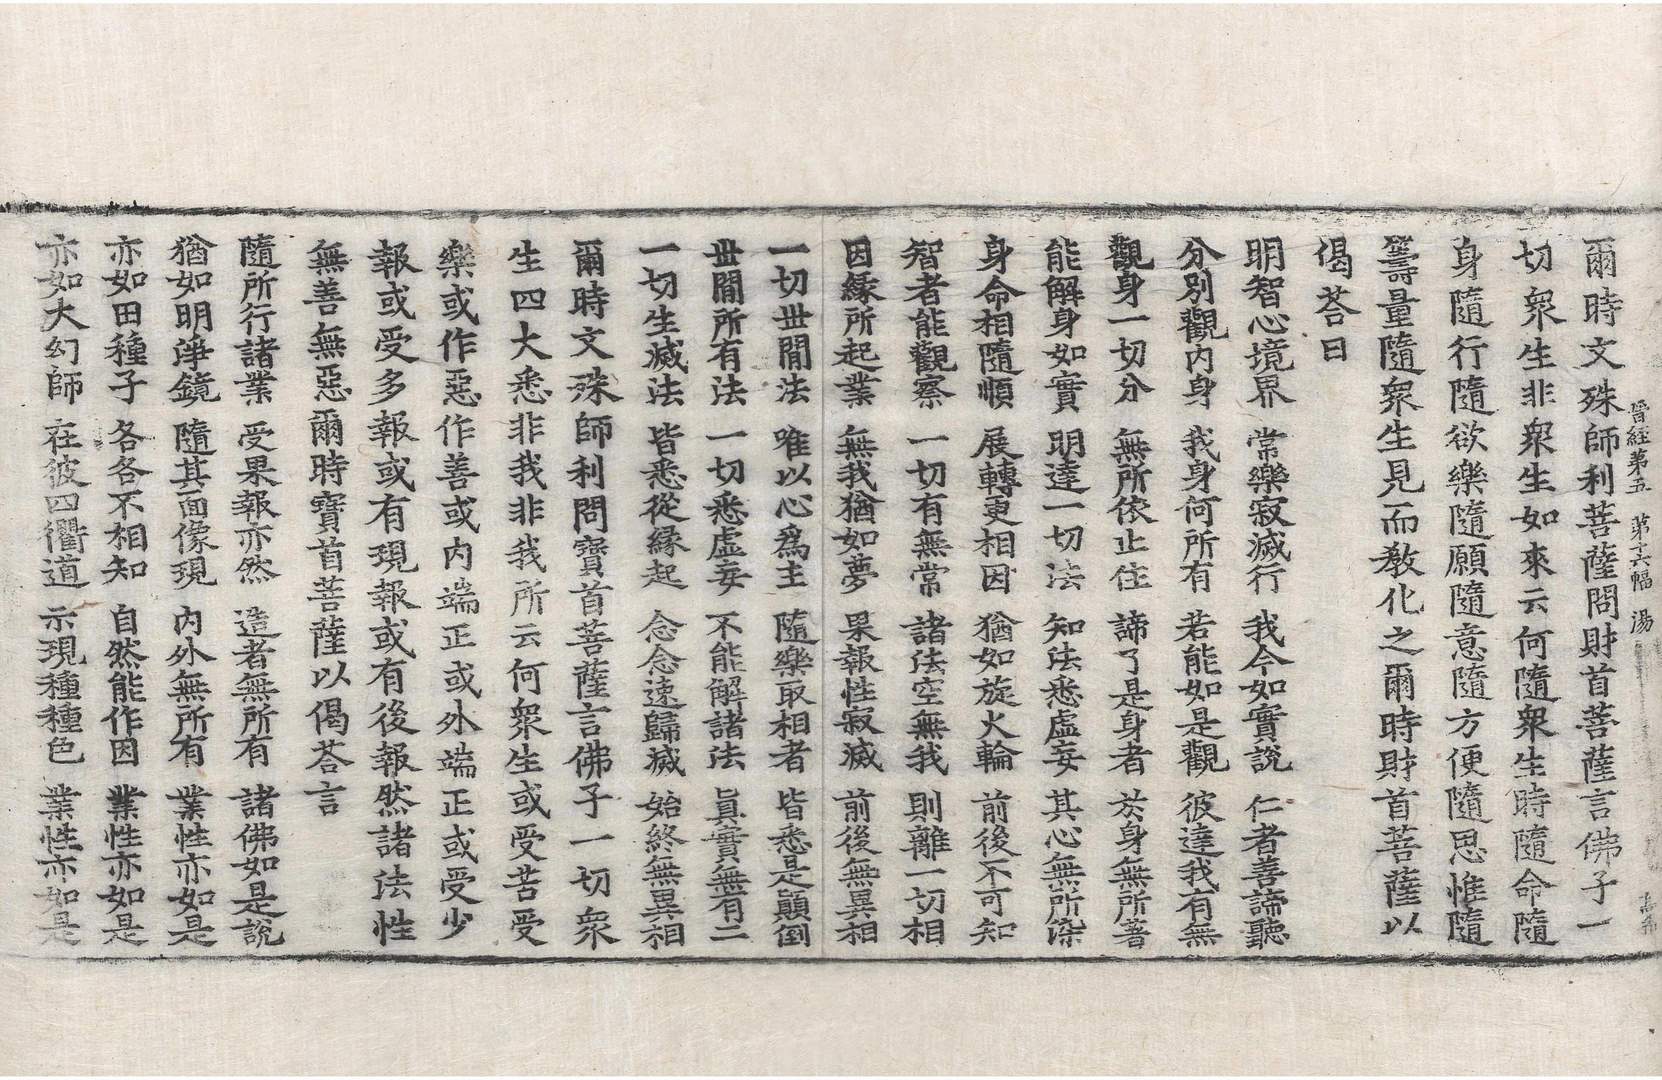 晉經第五 第十六幅 湯
爾時文殊師利菩薩問財首菩薩言佛子一
切衆生非衆生如來云何隨衆生時隨命隨
身隨行隨欲樂隨願隨意隨方便隨思惟隨
籌量隨衆生見而教化之爾時財首菩薩以
偈荅曰
明智心境界 常樂寂滅行 我今如實說 仁者善諦聽
分別觀内身 我身何所有 若能如是觀 彼達我有無
觀身一切分 無所依止住 諦了是身者 於身無所著
能解身如實 明達一切法 知法悉虛妄 其心無所染
身命相隨順 展轉更相因 猶如旋火輪 前後不可知
智者能觀察 一切有無常 諸法空無我 則離一切相
因緣所起業 無我猶如夢 果報性寂滅 前後無異相
一切世閒法 唯以心爲主 隨樂取相者 皆悉是顛倒
世閒所有法 一切悉虛妄 不能解諸法 眞實無有二
一切生滅法 皆悉從緣起 念念速歸滅 始終無異相
爾時文殊師利問寶首菩薩言佛子一切衆
生四大悉非我非我所云何衆生或受苦受
樂或作惡作善或内端正或外端正或受少
報或受多報或有現報或有後報然諸法性
無善無惡爾時寶首菩薩以偈荅言
隨所行諸業 受果報亦然 造者無所有 諸佛如是說
猶如明淨鏡 隨其面像現 内外無所有 業性亦如是
亦如田種子 各各不相知 自然能作因 業性亦如是
亦如大幻師 在彼四衢道 示現種種色 業性亦如是